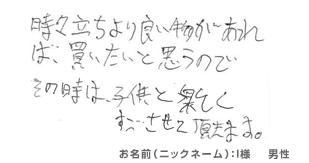 時々立ちより良い物があれ
ば、買いたいと思うので
その時は、子供と楽しく
させて頂きます。
お名前(ニックネーム):I様　男性